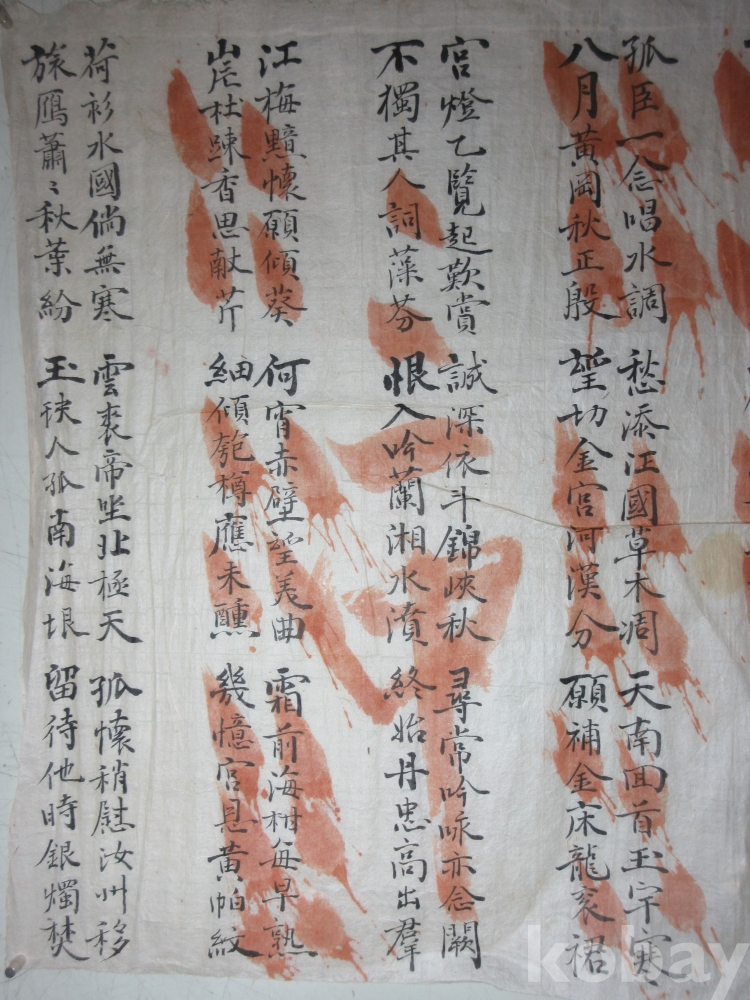 孤臣一念唱水調 愁添江國草木凋 天南回首玉宇寒
八月黃岡秋正殷 望切金宮河漢分 願補金床龍袞裙
宮燈乙覽起歎賞 誠深依斗錦峽秋 尋常吟咏亦念闕
不獨其人詞藻芬 恨入吟蘭湘水濆 終始丹忠高出羣
江梅黯懷願傾葵 何宵赤壁望美曲 霜前海柑每早熟
岸杜踈香思献芹 細傾匏樽應未醺 幾憶宮恩黃帕紋
荷衫水國倘無寒 雲裘帝坐北極天 孤懷稍慰汝州移
旅鴈蕭〻秋葉紛 玉袂人孤南海垠 留待他時銀燭焚
kobay